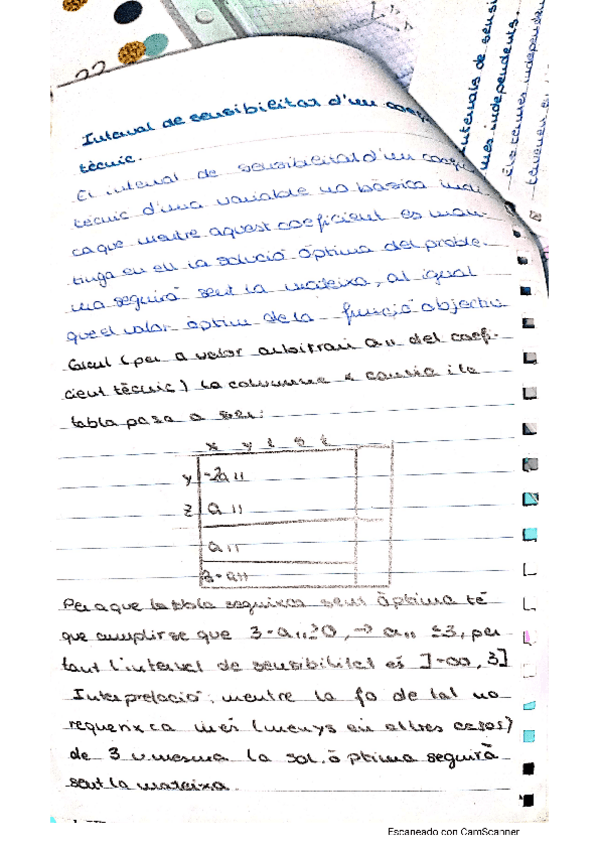 Interval de sensibilitat d'un coefi
tècnic.
El interval de sensibilitat d'un coefi
tècnic d'una variable no bàsica indi-
ca que mentre aquest coeficient es man-
tinga en ell la solució òptima del proble-
ma seguirà sent la mateixa, al igual
que el valor òptim de la funció objectiu
Càlcul (per a valor arbitrari a11 del coefi-
cient tècnic) la columna x canvia i la
tabla pasa a ser:
x y z s t
y -2a11
z a11
a11
3-a11
Per a que la tabla seguixca sent òptima té
que cumplirse que 3-a11≥0, → a11 ≤3, per
tant l'interval de sensibilitat és ]-∞, 3]
Interpretació: mentre la fa de tal no
requerixca més (menys en altres casos)
de 3 u.mesura la sol. òptima seguirà
sent la mateixa.
intervals de sensi
mes independents.
Els termes independen
Escaneado con CamScanner